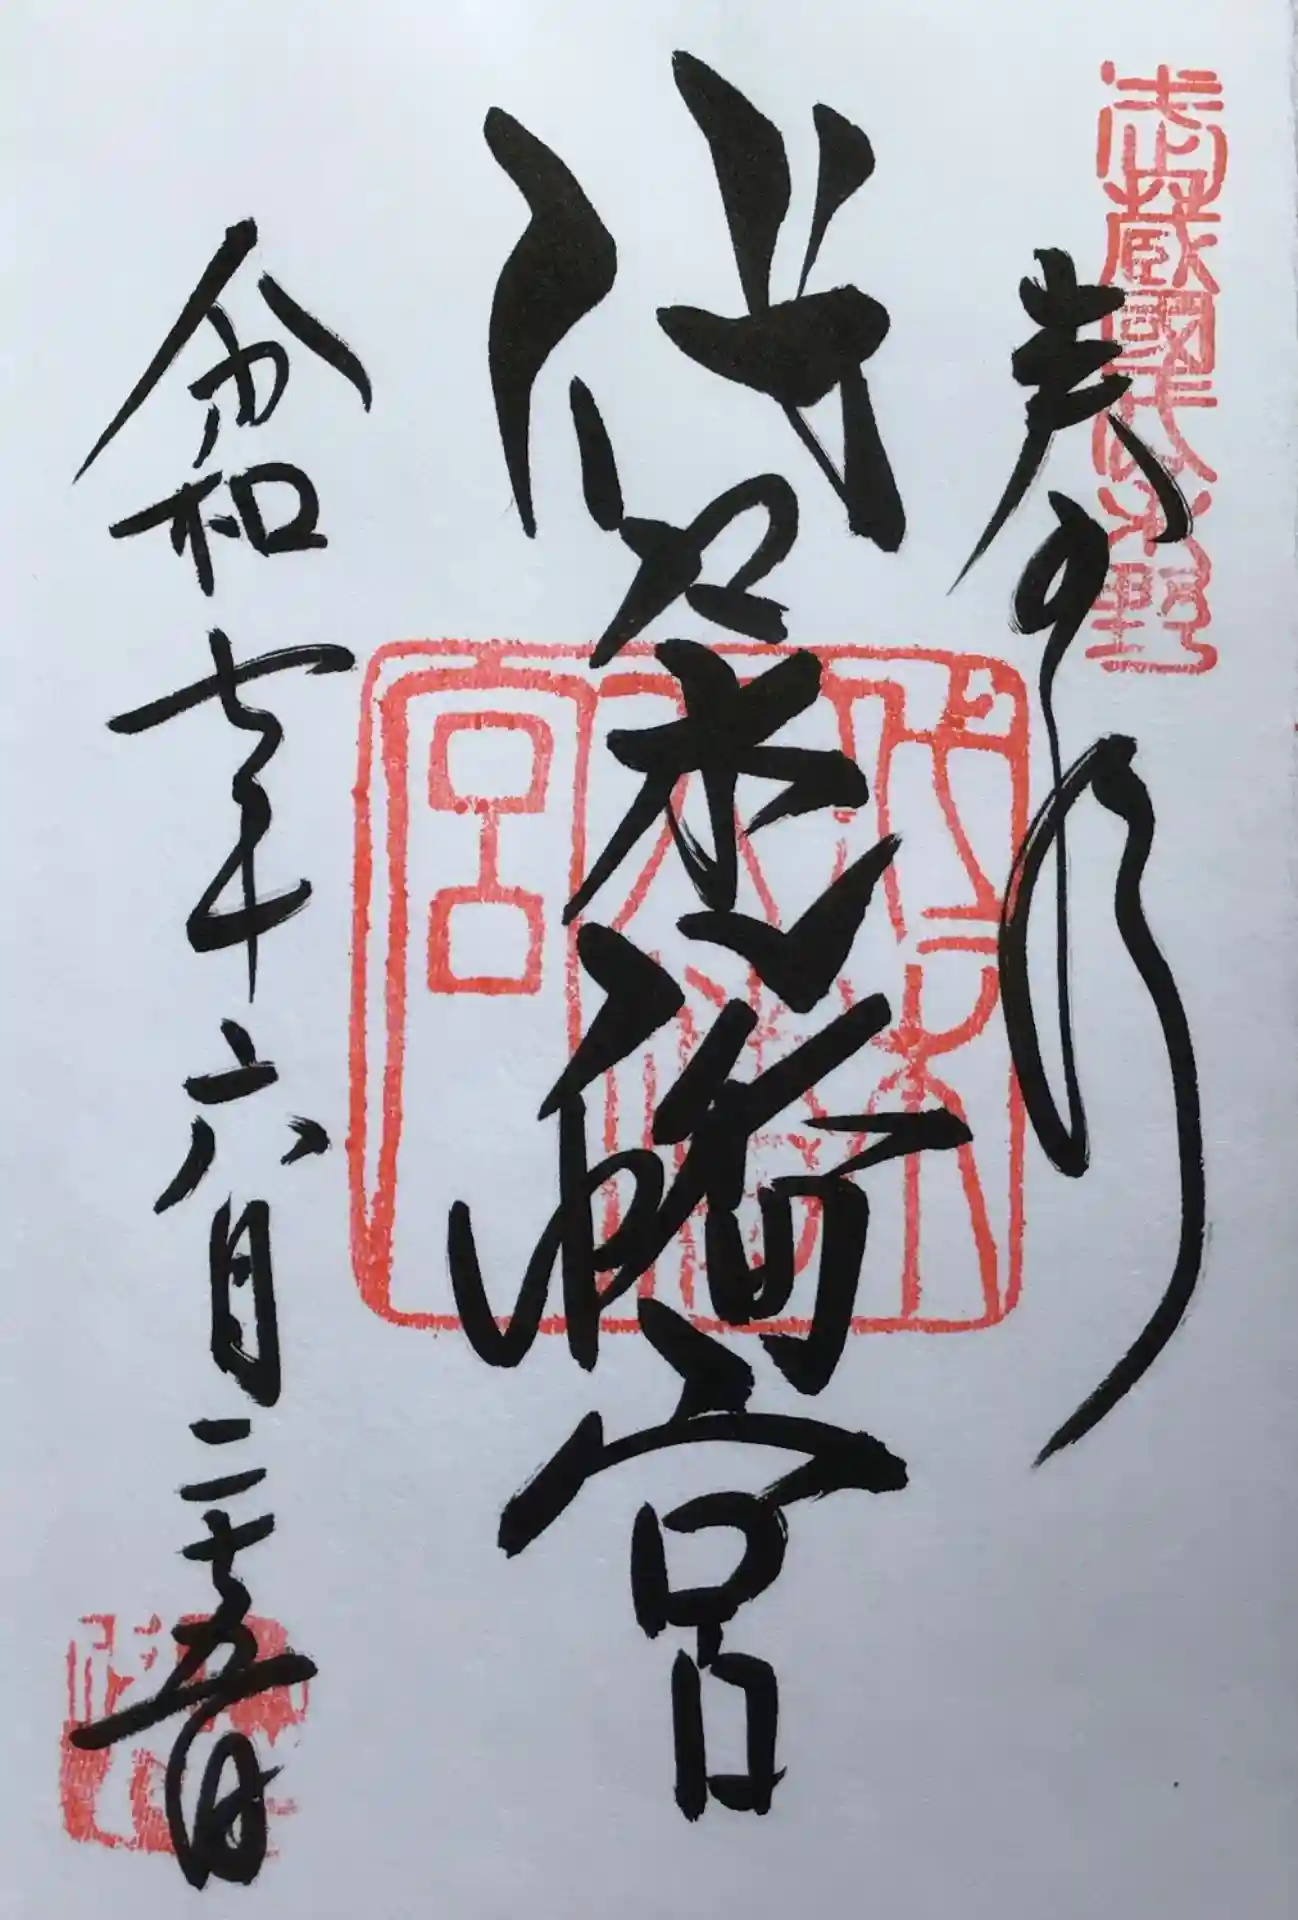 武蔵國代々木野
奉拝
代々木八幡宮
代々木八幡宮
令和七年六月二十五日